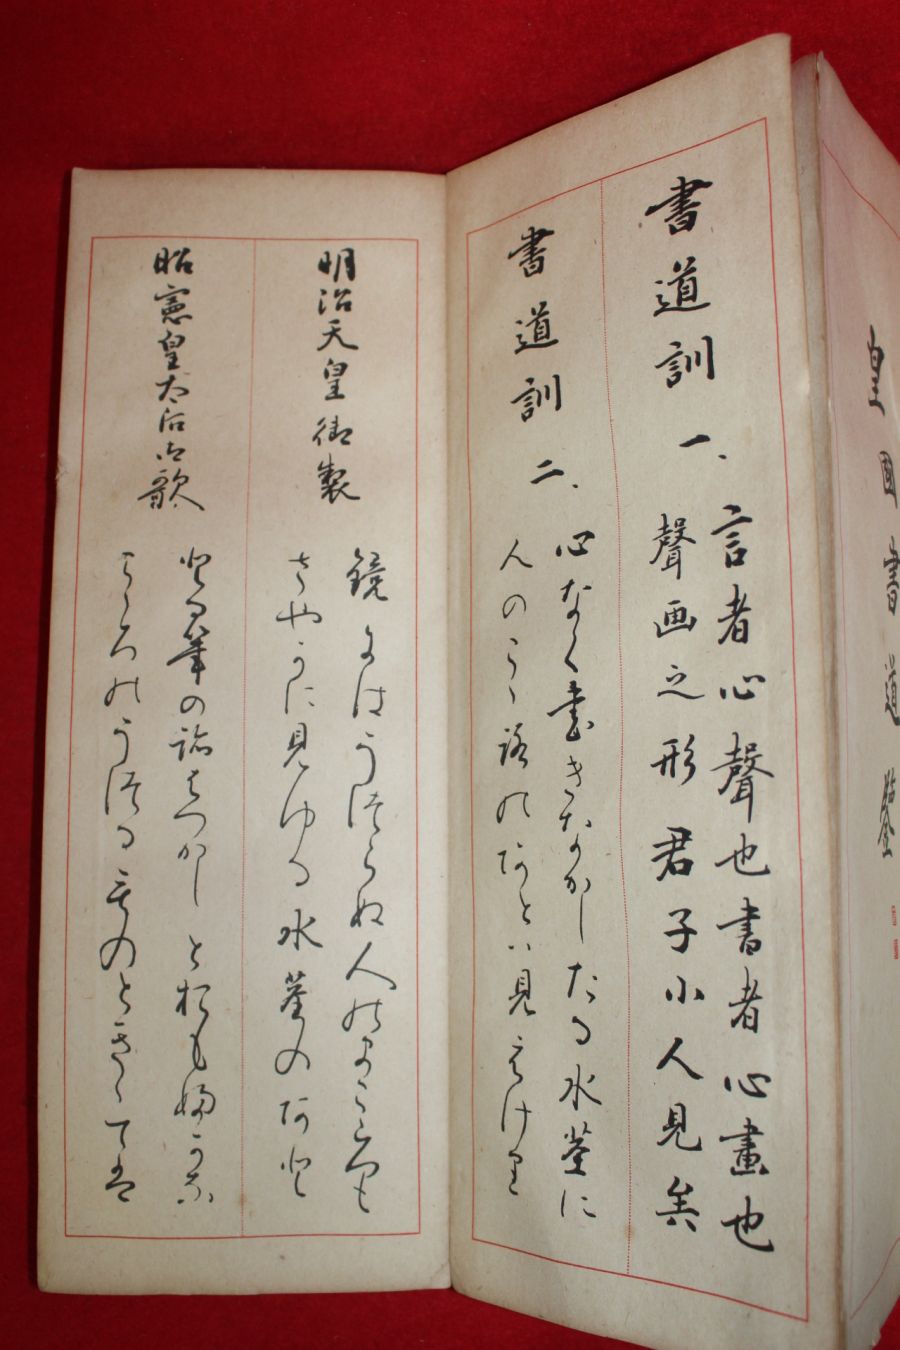 皇國書道鑒
書道訓 一、
言者心聲也書者心畫也
聲画之形君子小人見矣
書道訓 二、
心なく書きなかしたる水莖に
人のこゝ路のあとハ見えけり
明治天皇御製
鏡にはうつらぬ人のまこゝろも
さやかに見ゆる水莖のあと
昭憲皇太后御歌
とる筆の跡はつかしとおもふかな
こゝろのうつるものときゝては